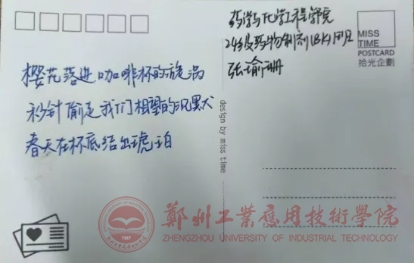 樱花落进咖啡杯的旋涡
秒针偷走我们相望的沉默
春天在杯底结出琥珀
药学与化学工程学院
24级药物制剂
张瑜珊
MISS
TIME
POSTCARD
拾光企劃
design by miss time
鄭州工業應用技術學院
ZHENGZHOU UNIVERSITY OF INDUSTRIAL TECHNOLOGY